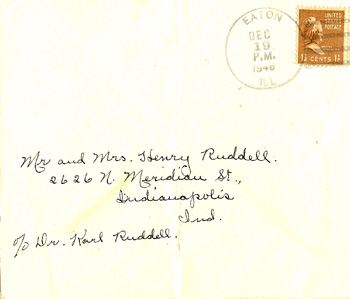 EATON
DEC
19
P.M.
1946
ILL
UNITED
STATES
POSTAGE
1½ CENTS 1½
Mr and Mrs. Henry Ruddell.
2626 N. Meridian St.,
Indianapolis
Ind.
c/o Dr. Karl Ruddell.